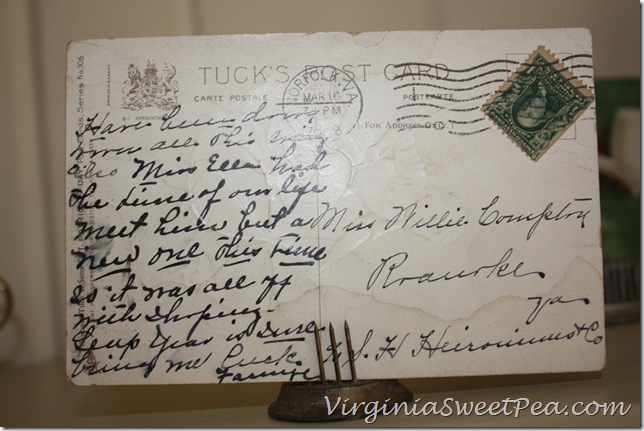 TUCK'S POST CARD
CARTE POSTALE
POSTKARTE
BY APPOINTMENT
NORFOLK, VA.
MAR 16
7 - PM
FOR ADDRESS ONLY
Series No. 106
Have been down
town all this
also Miss Ella had
the time of our life
meet him but a
new one this time
so it was all off
with shoping
Leap Year is sure
bring me luck
Miss Willie Compton
Roanoke
Va
S. H. Heironimus & Co
VirginiaSweetPea.com